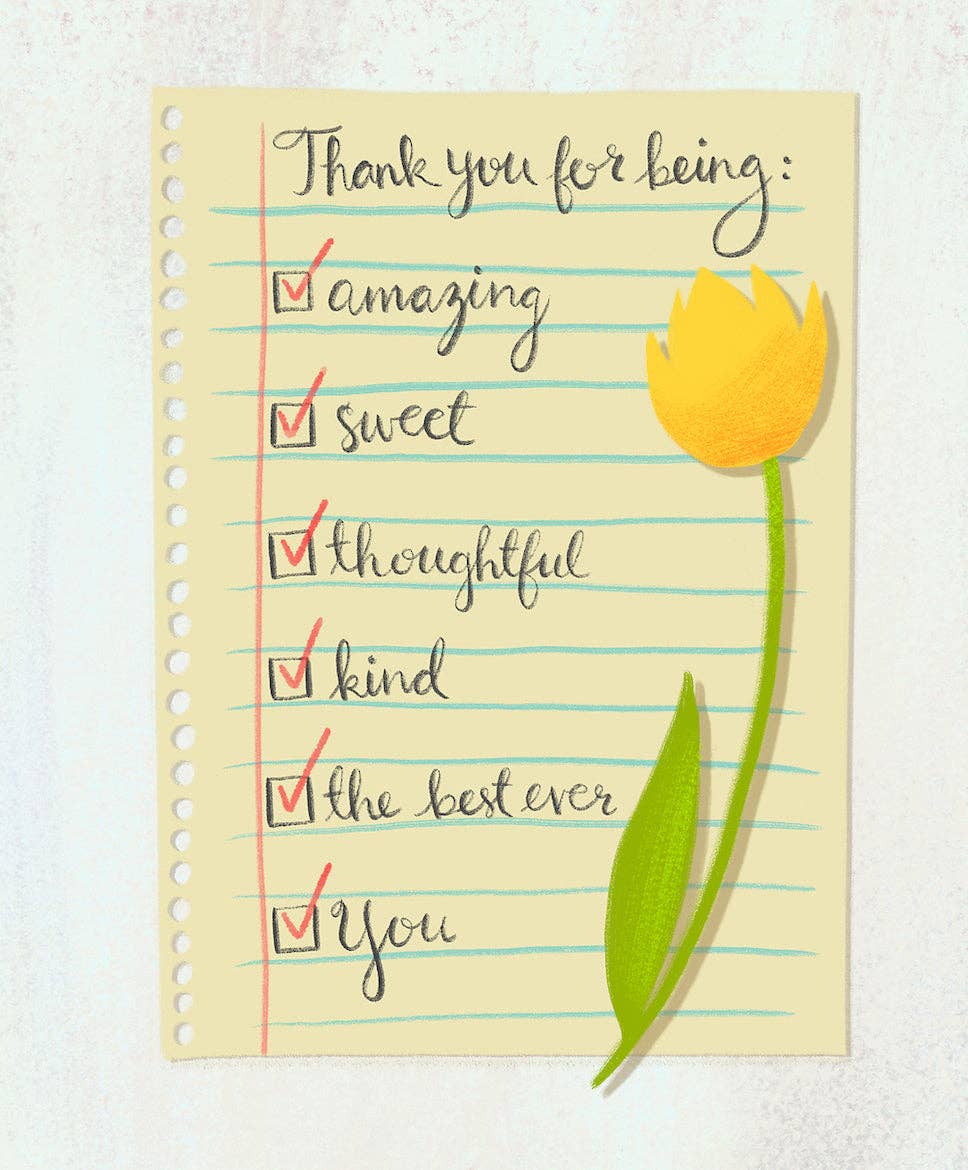 Thank you for being:
amazing
sweet
thoughtful
kind
the best ever
You